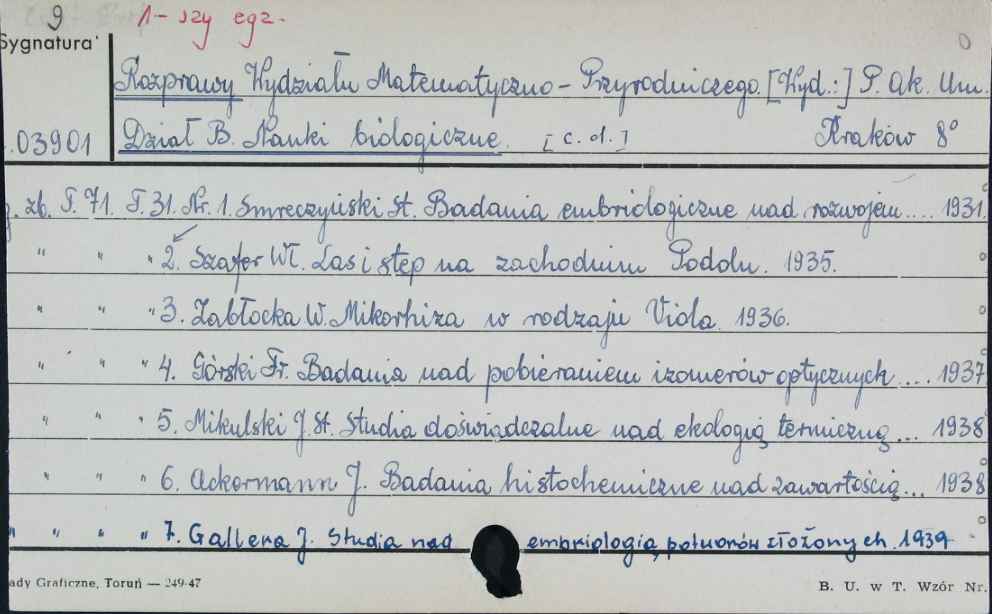 9 1-szy egz.
Sygnatura
Rozprawy Wydziału Matematyczno-Przyrodniczego. [Wyd.:] P. Ak. Um.
03901 Dział B. Nauki biologiczne. [c. d.] Kraków 8°
zb. T. 71. T. 31. Nr. 1. Smreczyński St. Badania embriologiczne nad rozwojem.... 1931.
" " " 2. Szafer Wł. Las i step na zachodnim Podolu. 1935.
" " " 3. Zabłocka W. Mikorhiza w rodzaju Viola. 1936.
" " " 4. Górski Fr. Badania nad pobieraniem izomerów optycznych.... 1937
" " " 5. Mikulski J. St. Studia doświadczalne nad ekologią termiczną... 1938
" " " 6. Ackermann J. Badania histochemiczne nad zawartością... 1938
" " " " 7. Gallera J. Studia nad embriologią potworów złożonych. 1939
ady Graficzne, Toruń — 249-47 B. U. w T. Wzór Nr.